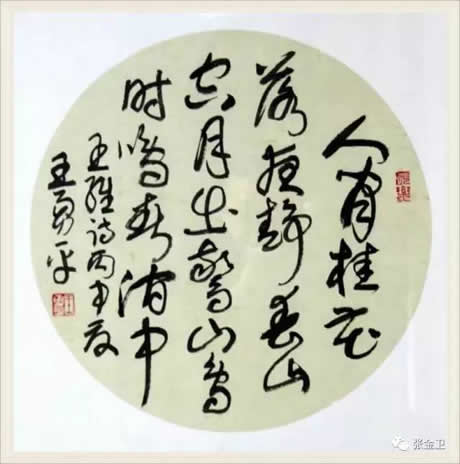 人闲桂花
落夜静春山
空月出驚山鸟
时鸣春涧中
王维诗丙申夏
王勇平
张金卫